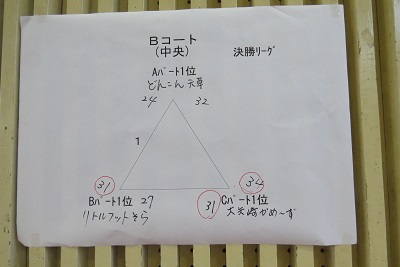 Bコート
(中央)
決勝リーグ
Aパート1位
どんこん天草
24 32
1
31 34
Bパート1位 27 31 Cパート1位
リトルフットそら 大矢崎かめ〜ず